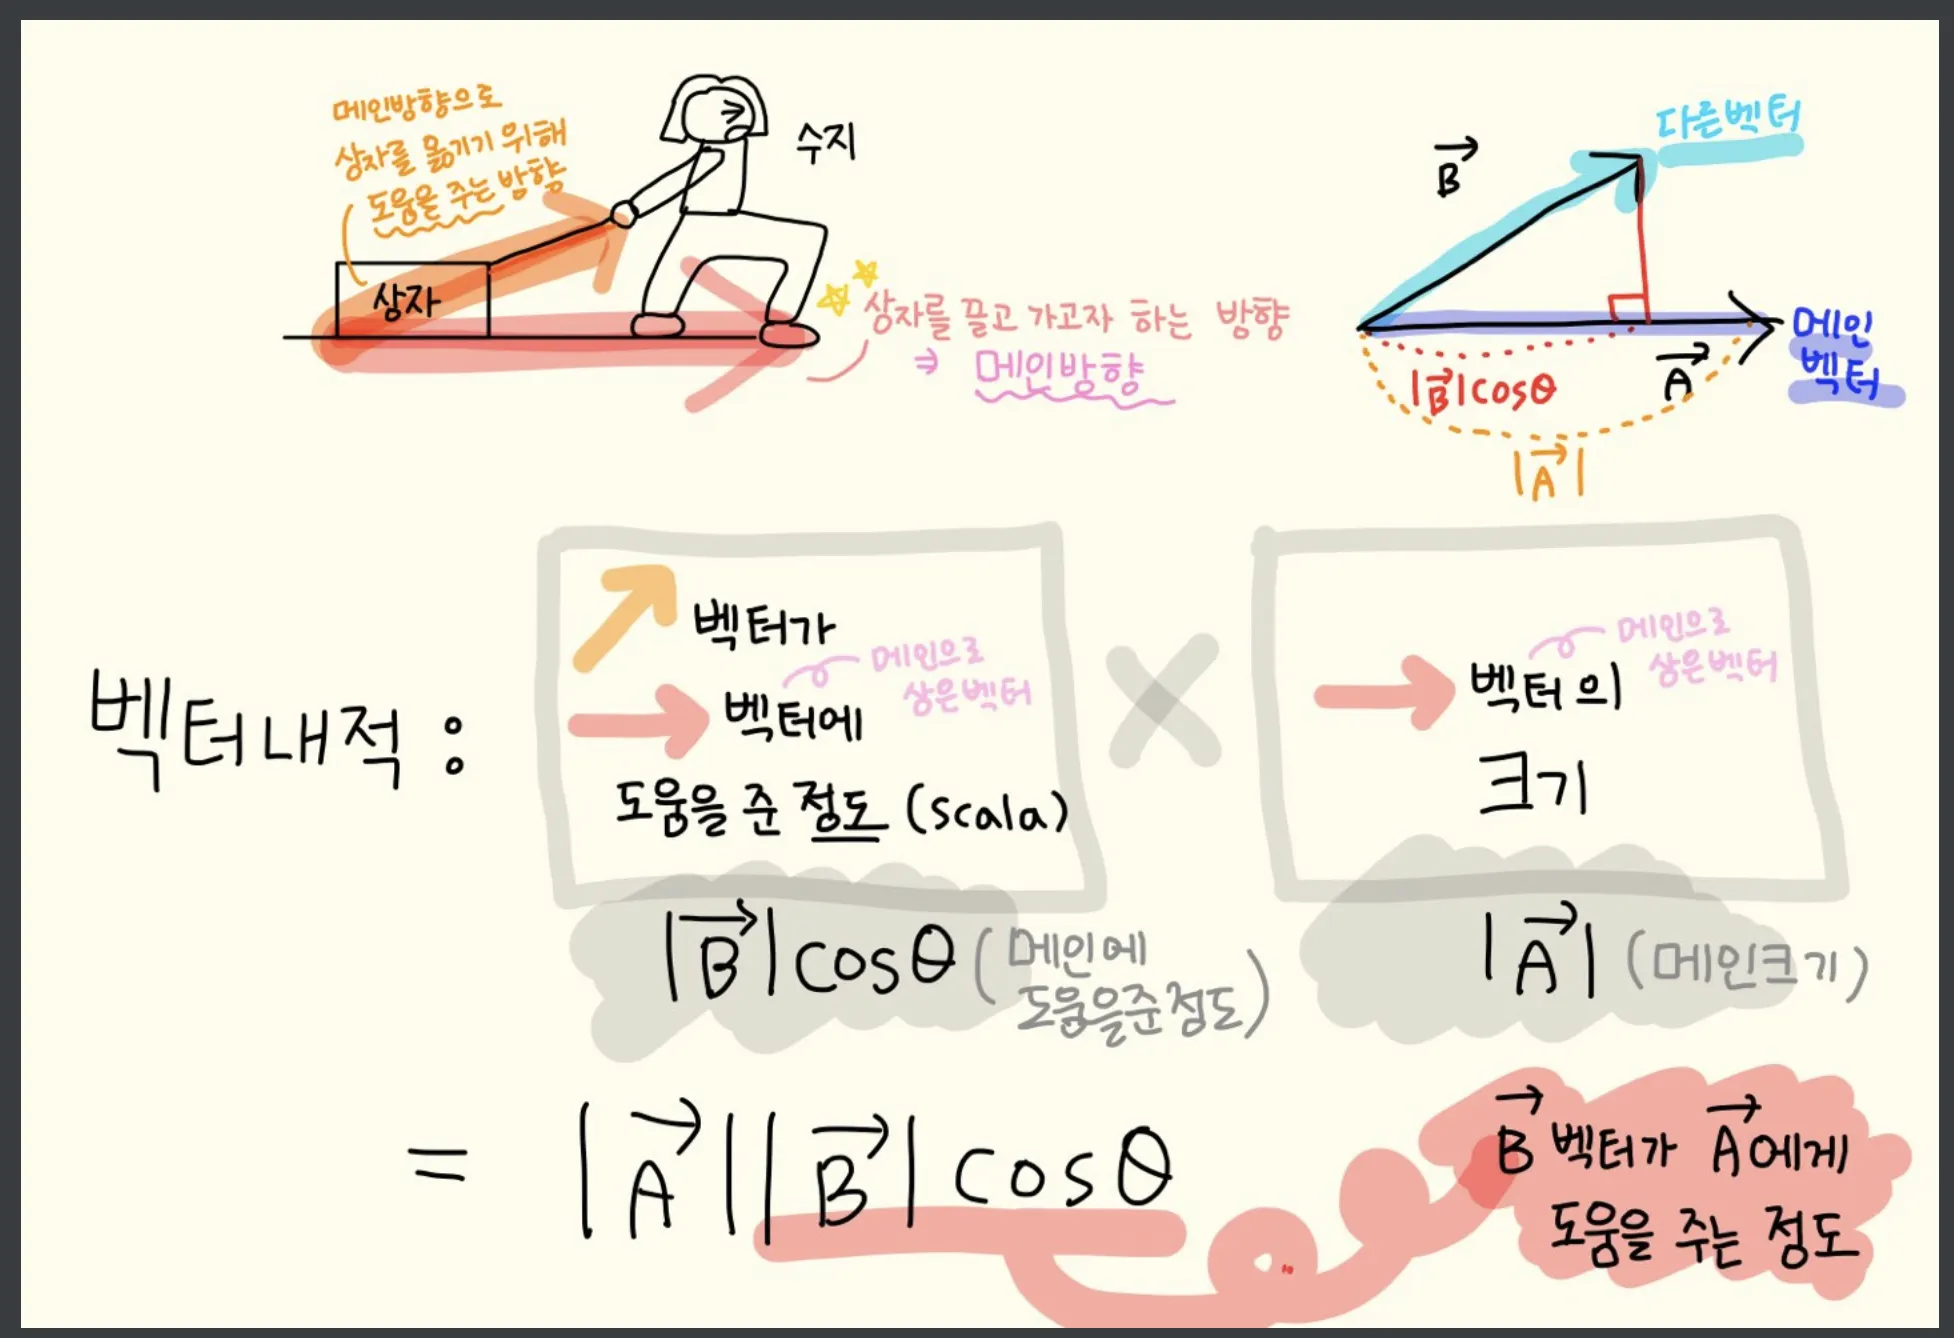 메인방향으로
상자를 옮기기 위해
도움을 주는 방향
수지
상자
상자를 끌고 가고자 하는 방향
⇒ 메인방향
다른벡터
B
메인
벡터
A
|B|cosθ
|A|
벡터내적 :
벡터가
메인으로
삼은벡터
벡터에
도움을 준 정도 (scala)
×
메인으로
삼은벡터
벡터의
크기
|B|cosθ (메인에
도움을준정도)
|A| (메인크기)
= |A||B|cosθ
B 벡터가 A에게
도움을 주는 정도